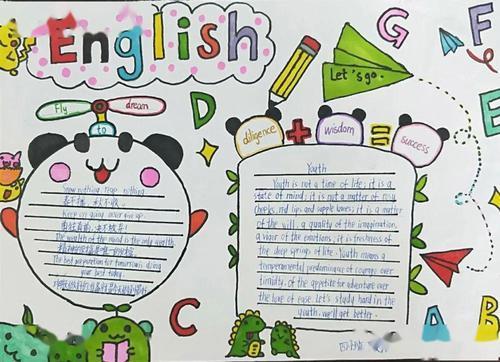 English
G
F
E
Let's go.
Fly
dream
to
D
diligence + wisdom = success
Sow nothing, reap nothing
春不播，秋不收
Keep on going never give up.
勇往直前，决不放弃！
The wealth of the mind is the only wealth.
The best preparation for tomorrow is doing
your best today.
Youth
Youth is not a time of life; it is a
state of mind; it is not a matter of rosy
cheeks, red lips and supple knees; it is a matter
of the will, a quality of the imagination,
a vigor of the emotions; it is freshness of
the deep springs of life. Youth means a
temperamental predominance of courage over
timidity, of the appetite for adventure over
the love of ease. Let's study hard in the
youth, we'll get better.
C
A
B